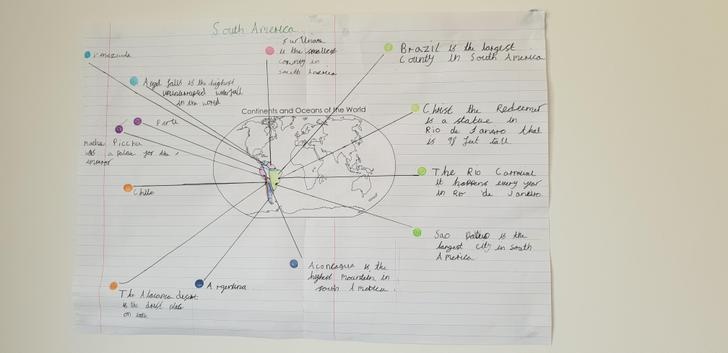 South America
Suriname
is the smallest
county in
south America
Brazil is the largest
County in South America
Venezuela
Angel falls is the highest
uninterrupted waterfall
in the world
Continents and Oceans of the World
Christ the Redeemer
is a statue in
Rio de Janeiro that
is 98 feet tall
Perú
Machu Picchu
was a palace for the
emperor
The Rio Carnival
it happens every year
in Rio de Janeiro
Chile
Sao Paulo is the
largest city in South
America
Aconcagua is the
highest mountain in
south America.
Argentina
The Atacama desert
is the driest place
on